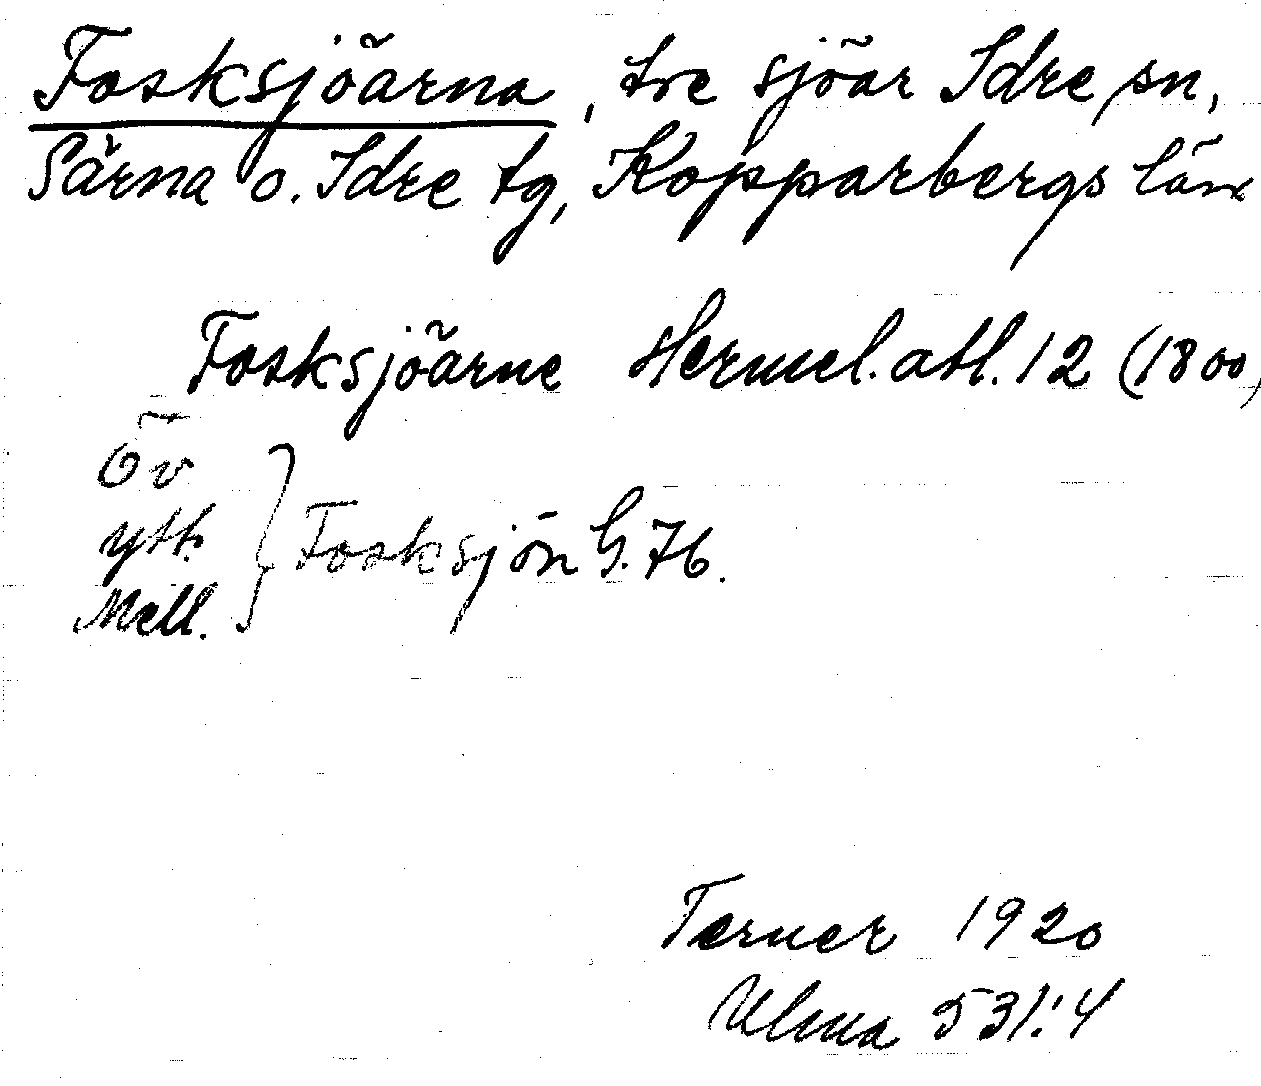 Fosksjöarna, tre sjöar Idre sn,
Särna o. Idre tg, Kopparbergs län
Fosksjöarne Hermel. atl. 12 (1800)
Öv
ytt.
Mell.
} Fosksjön G. 76.
Terner 1920
Ulma 531:4